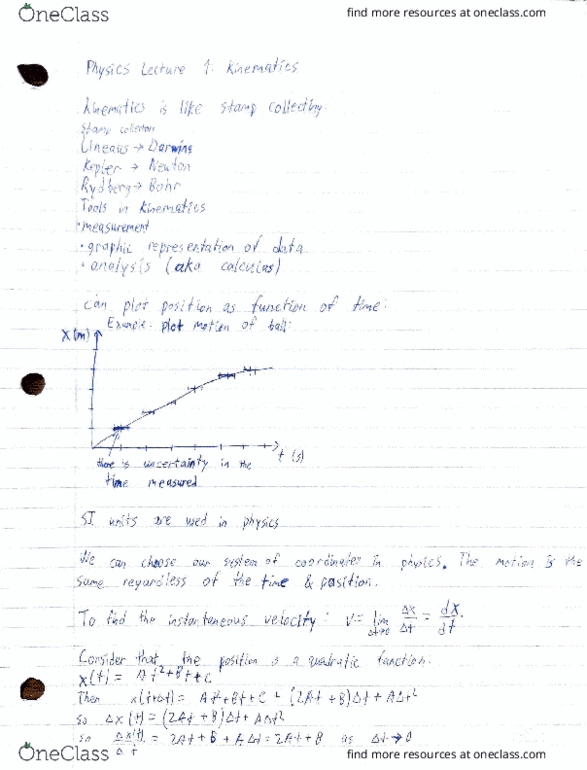 OneClass
find more resources at oneclass.com
Physics Lecture 1: Kinematics
Kinematics is like stamp collecting.
Stamp collectors
Lineaus → Darwins
Kepler → Newton
Rydberg → Bohr
Tools in Kinematics
• measurement
• graphic representation of data
• analysis (aka calculus)
can plot position as function of time:
Example: plot motion of ball:
X(m)
t (s)
there is uncertainty in the
time measured
SI units are used in physics
We can choose our system of coordinates in physics. The motion is the
same regardless of the time & position.
To find the instantaneous velocity: V = lim Δt→0 Δx/Δt = dx/dt.
Consider that the position is a quadratic function.
x(t) = At²+Bt+C
Then x(t+Δt) = At²+Bt+C + (2At+B)Δt + AΔt²
So Δx(t) = (2At+B)Δt + AΔt²
so Δx(t)/Δt = 2At+B+AΔt = 2At+B as Δt→0
OneClass
find more resources at oneclass.com